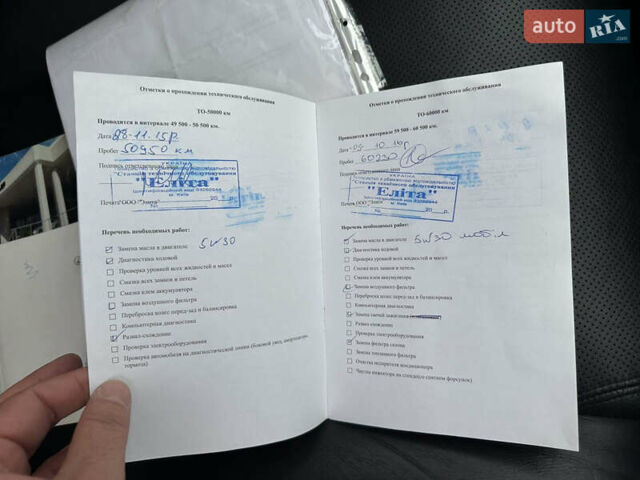 auto RIA .com
Отметки о прохождении технического обслуживания
ТО-50000 км
Проводится в интервале 49 500 - 50 500 км.
Дата 28-11-15р
Пробег 50450 км
Подпись ответственного
УКРАЇНА
"Станція технічного обслуговування
"Еліта"
м. Київ
Печать ООО "Элита"
Перечень необходимых работ:
Замена масла в двигателе 5w30
Диагностика ходовой
Проверка уровней всех жидкостей и масел
Смазка всех замков и петель
Смазка клем аккумулятора
Замена воздушного фильтра
Переброска колес перед-зад и балансировка
Компьютерная диагностика
Развал-схождение
Проверка электрооборудования
Проверка автомобиля на диагностической линии (боковой увод, амортизатора,
тормоза)
Отметки о прохождении технического обслуживания
ТО-60000 км
Проводится в интервале 59 500 - 60 500 км.
Дата 10
Пробег 60230
УКРАЇНА
"Станція технічного обслуговування
"Еліта"
м. Київ
Печать ООО "Элита"
Перечень необходимых работ:
Замена масла в двигателе 5w30 мобіл
Диагностика ходовой
Проверка уровней всех жидкостей и масел
Смазка всех замков и петель
Смазка клем аккумулятора
Замена воздушного фильтра
Переброска колес перед-зад и балансировка
Компьютерная диагностика
Замена свечей зажигания
Развал-схождение
Проверка электрооборудования
Замена фильтра салона
Замена топливного фильтра
Очистка испарителя кондиционера
Чистка инжектора на стенде(со снятием форсунок)